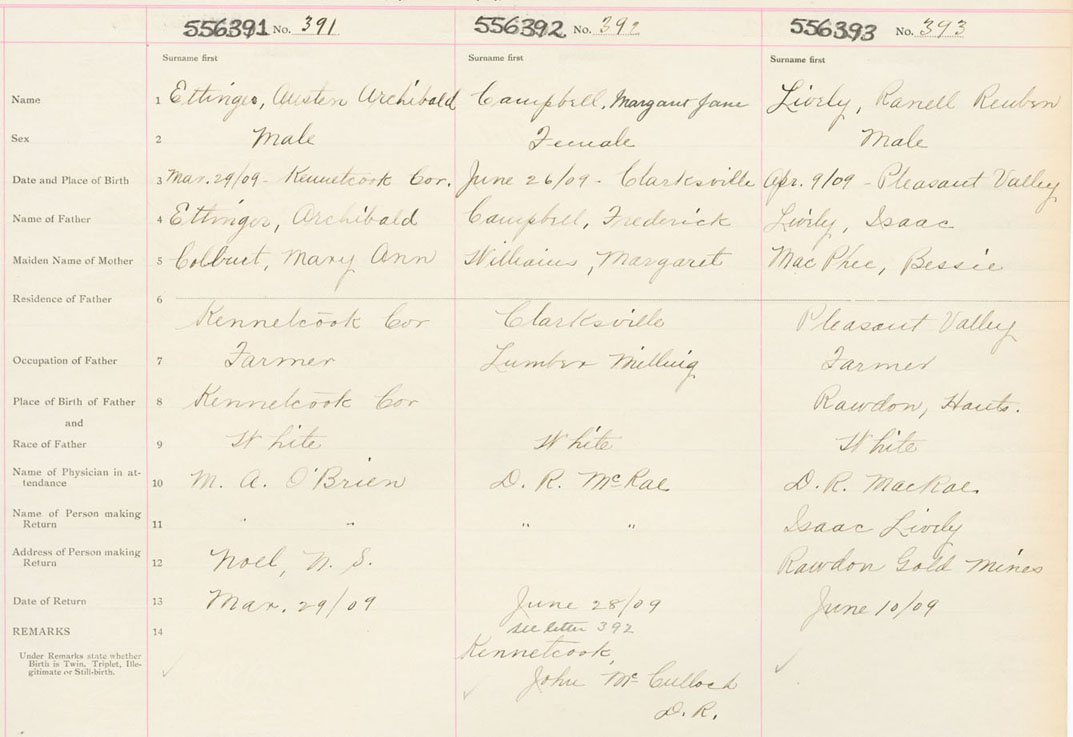 556391 No. 391 556392 No. 392 556393 No. 393
Surname first Surname first Surname first
Name 1 Ettinger, Austen Archibald Campbell, Margaret Jane Lively, Ranell Reuben
Sex 2 Male Female Male
Date and Place of Birth 3 Mar. 29/09 - Kennetcook Cor. June 26/09 - Clarksville Apr. 9/09 - Pleasant Valley
Name of Father 4 Ettinger, Archibald Campbell, Frederick Lively, Isaac
Maiden Name of Mother 5 Mary Ann Williams, Margaret MacPhee, Bessie
Residence of Father 6
Kennetcook Cor Clarksville Pleasant Valley
Occupation of Father 7 Farmer Lumber Milling Farmer
Place of Birth of Father 8 Kennetcook Cor Rawdon, Hants.
and
Race of Father 9 White White White
Name of Physician in at-
tendance 10 M. A. O'Brien D. R. McRae D. R. MacRae
Name of Person making
Return 11 " " " " Isaac Lively
Address of Person making
Return 12 Noel, N. S. Rawdon Gold Mines
Date of Return 13 Mar. 29/09 June 28/09 June 10/09
REMARKS 14 see letter 392
Under Remarks state whether
Birth is Twin, Triplet, Ille-
gitimate or Still-birth.
Kennetcook
John McCulloch
D. R.